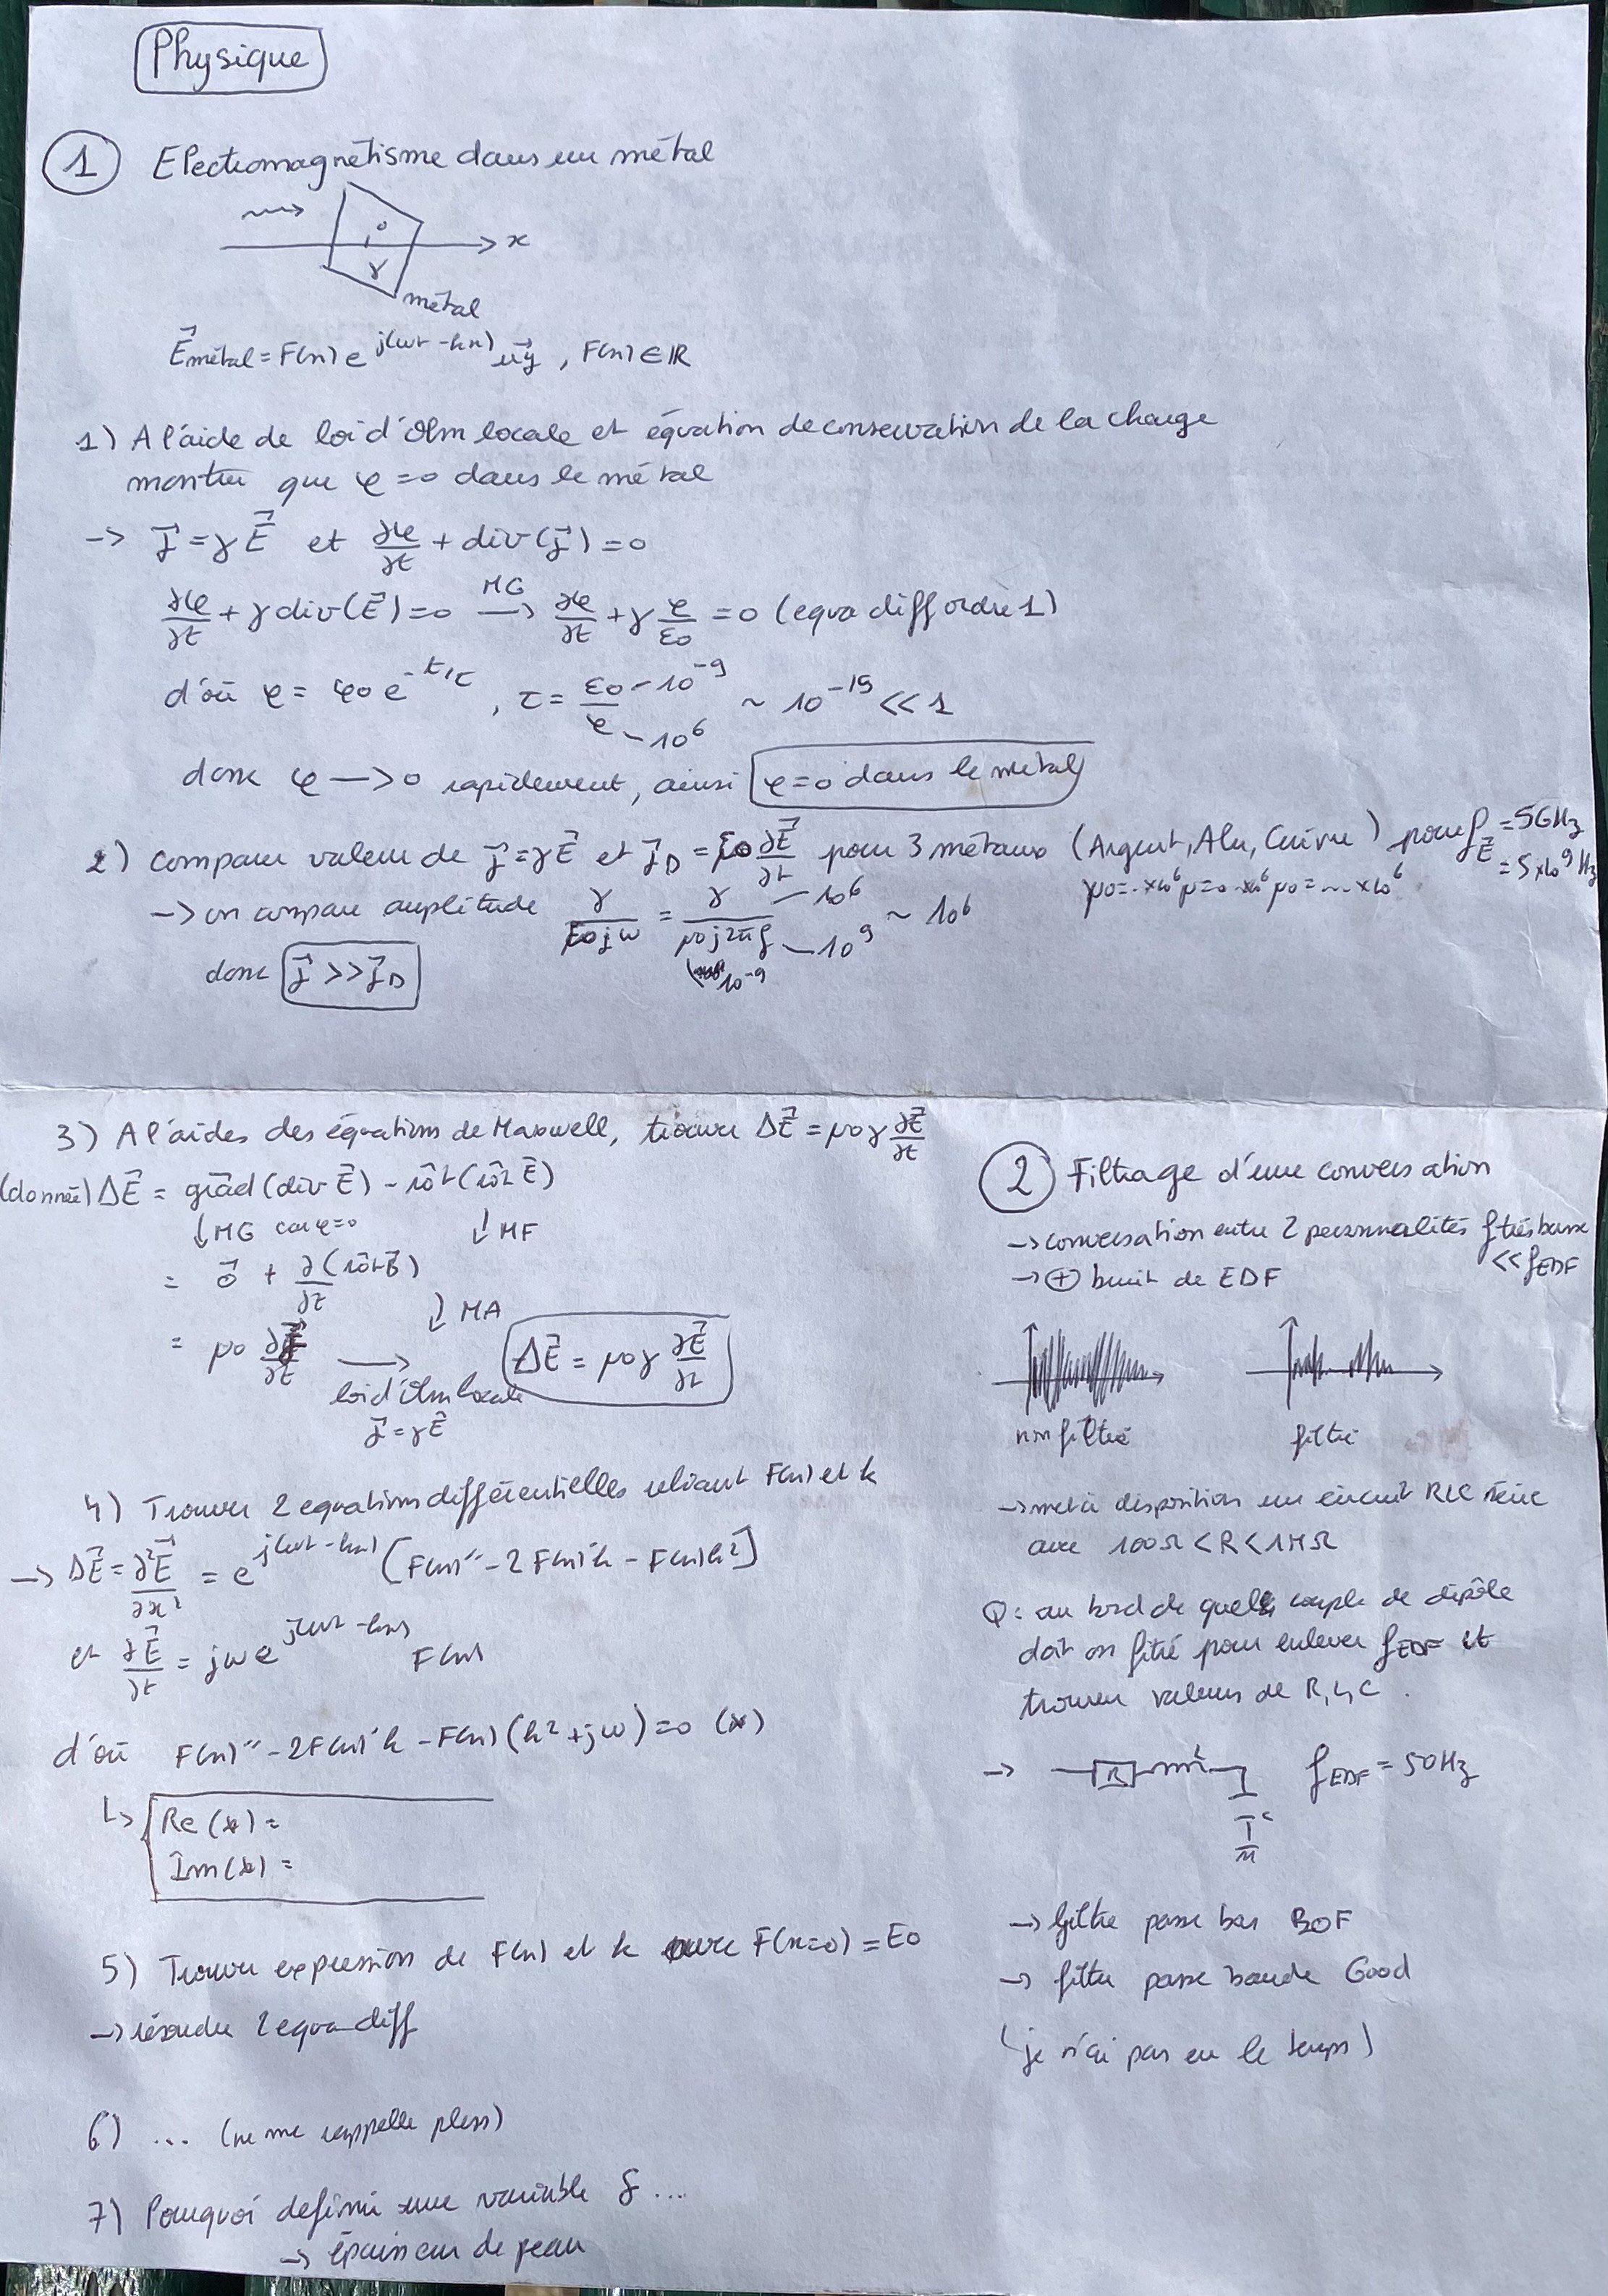 Physique
1 Electromagnétisme dans un métal
0
x
γ
métal
E⃗métal = F(x) e^j(ωt-kx) u⃗y , F(x) ∈ ℝ
1) A l'aide de loi d'Ohm locale et équation de conservation de la charge
montrer que φ = 0 dans le métal
-> j⃗ = γ E⃗ et ∂φ/∂t + div(j⃗) = 0
∂φ/∂t + γ div(E⃗) = 0 MG -> ∂φ/∂t + γ φ/ε0 = 0 (equa diff ordre 1)
d'où φ = φ0 e^-t/τ , τ = ε0 - 10^-9 / φ - 10^6 ~ 10^-15 << 1
donc φ -> 0 rapidement, ainsi φ = 0 dans le métal
2) comparer valeur de j⃗ = γE⃗ et j⃗D = ε0 ∂E⃗/∂t pour 3 métaux (Argent, Alu, Cuivre) pour fE⃗ = 5GHz
= 5x10^9 Hz
-> on compare amplitude γ/ε0jω = γ/μ0j2πf - 10^6 - 10^9 ~ 10^6
10^-9
donc j⃗ >> j⃗D
3) A l'aides des équations de Maxwell, trouver ΔE⃗ = μ0γ ∂E⃗/∂t
(donnée) ΔE⃗ = grad(div E⃗) - rot(rot E⃗)
↓ MG car φ=0 ↓ MF
= 0⃗ + ∂(rot B⃗)/∂t
↓ MA
= μ0 ∂j⃗/∂t -> ΔE⃗ = μ0γ ∂E⃗/∂t
loi d'Ohm locale
j⃗ = γE⃗
4) Trouver 2 equations différentielles reliant F(x) et k
-> ΔE⃗ = ∂²E⃗/∂x² = e^j(ωt-kx) [F(x)'' - 2F(x)'k - F(x)k²]
et ∂E⃗/∂t = jω e^j(ωt-kx) F(x)
d'où F(x)'' - 2F(x)'k - F(x)(k²+jω) = 0 (*)
↳ Re(*) =
Im(*) =
5) Trouver expression de F(x) et k avec F(x=0) = E0
-> résoudre 2 equa diff
6) ... (ne me rappelle pluss)
7) Pourquoi définir une variable δ ...
-> épaisseur de peau
2 Filtrage d'une conversation
-> conversation entre 2 personnalités f très basse
<< fEDF
-> ⊕ bruit de EDF
non filtré
filtré
-> met à disposition un circuit RLC série
avec 100Ω < R < 1MΩ
Q : au bord de quels couple de dipôle
doit on filtré pour enlever fEDF et
trouver valeurs de R, L, C .
-> R L C fEDF = 50Hz
-> filtre passe bas BOF
-> filtre passe bande Good
(je n'ai pas eu le temps)